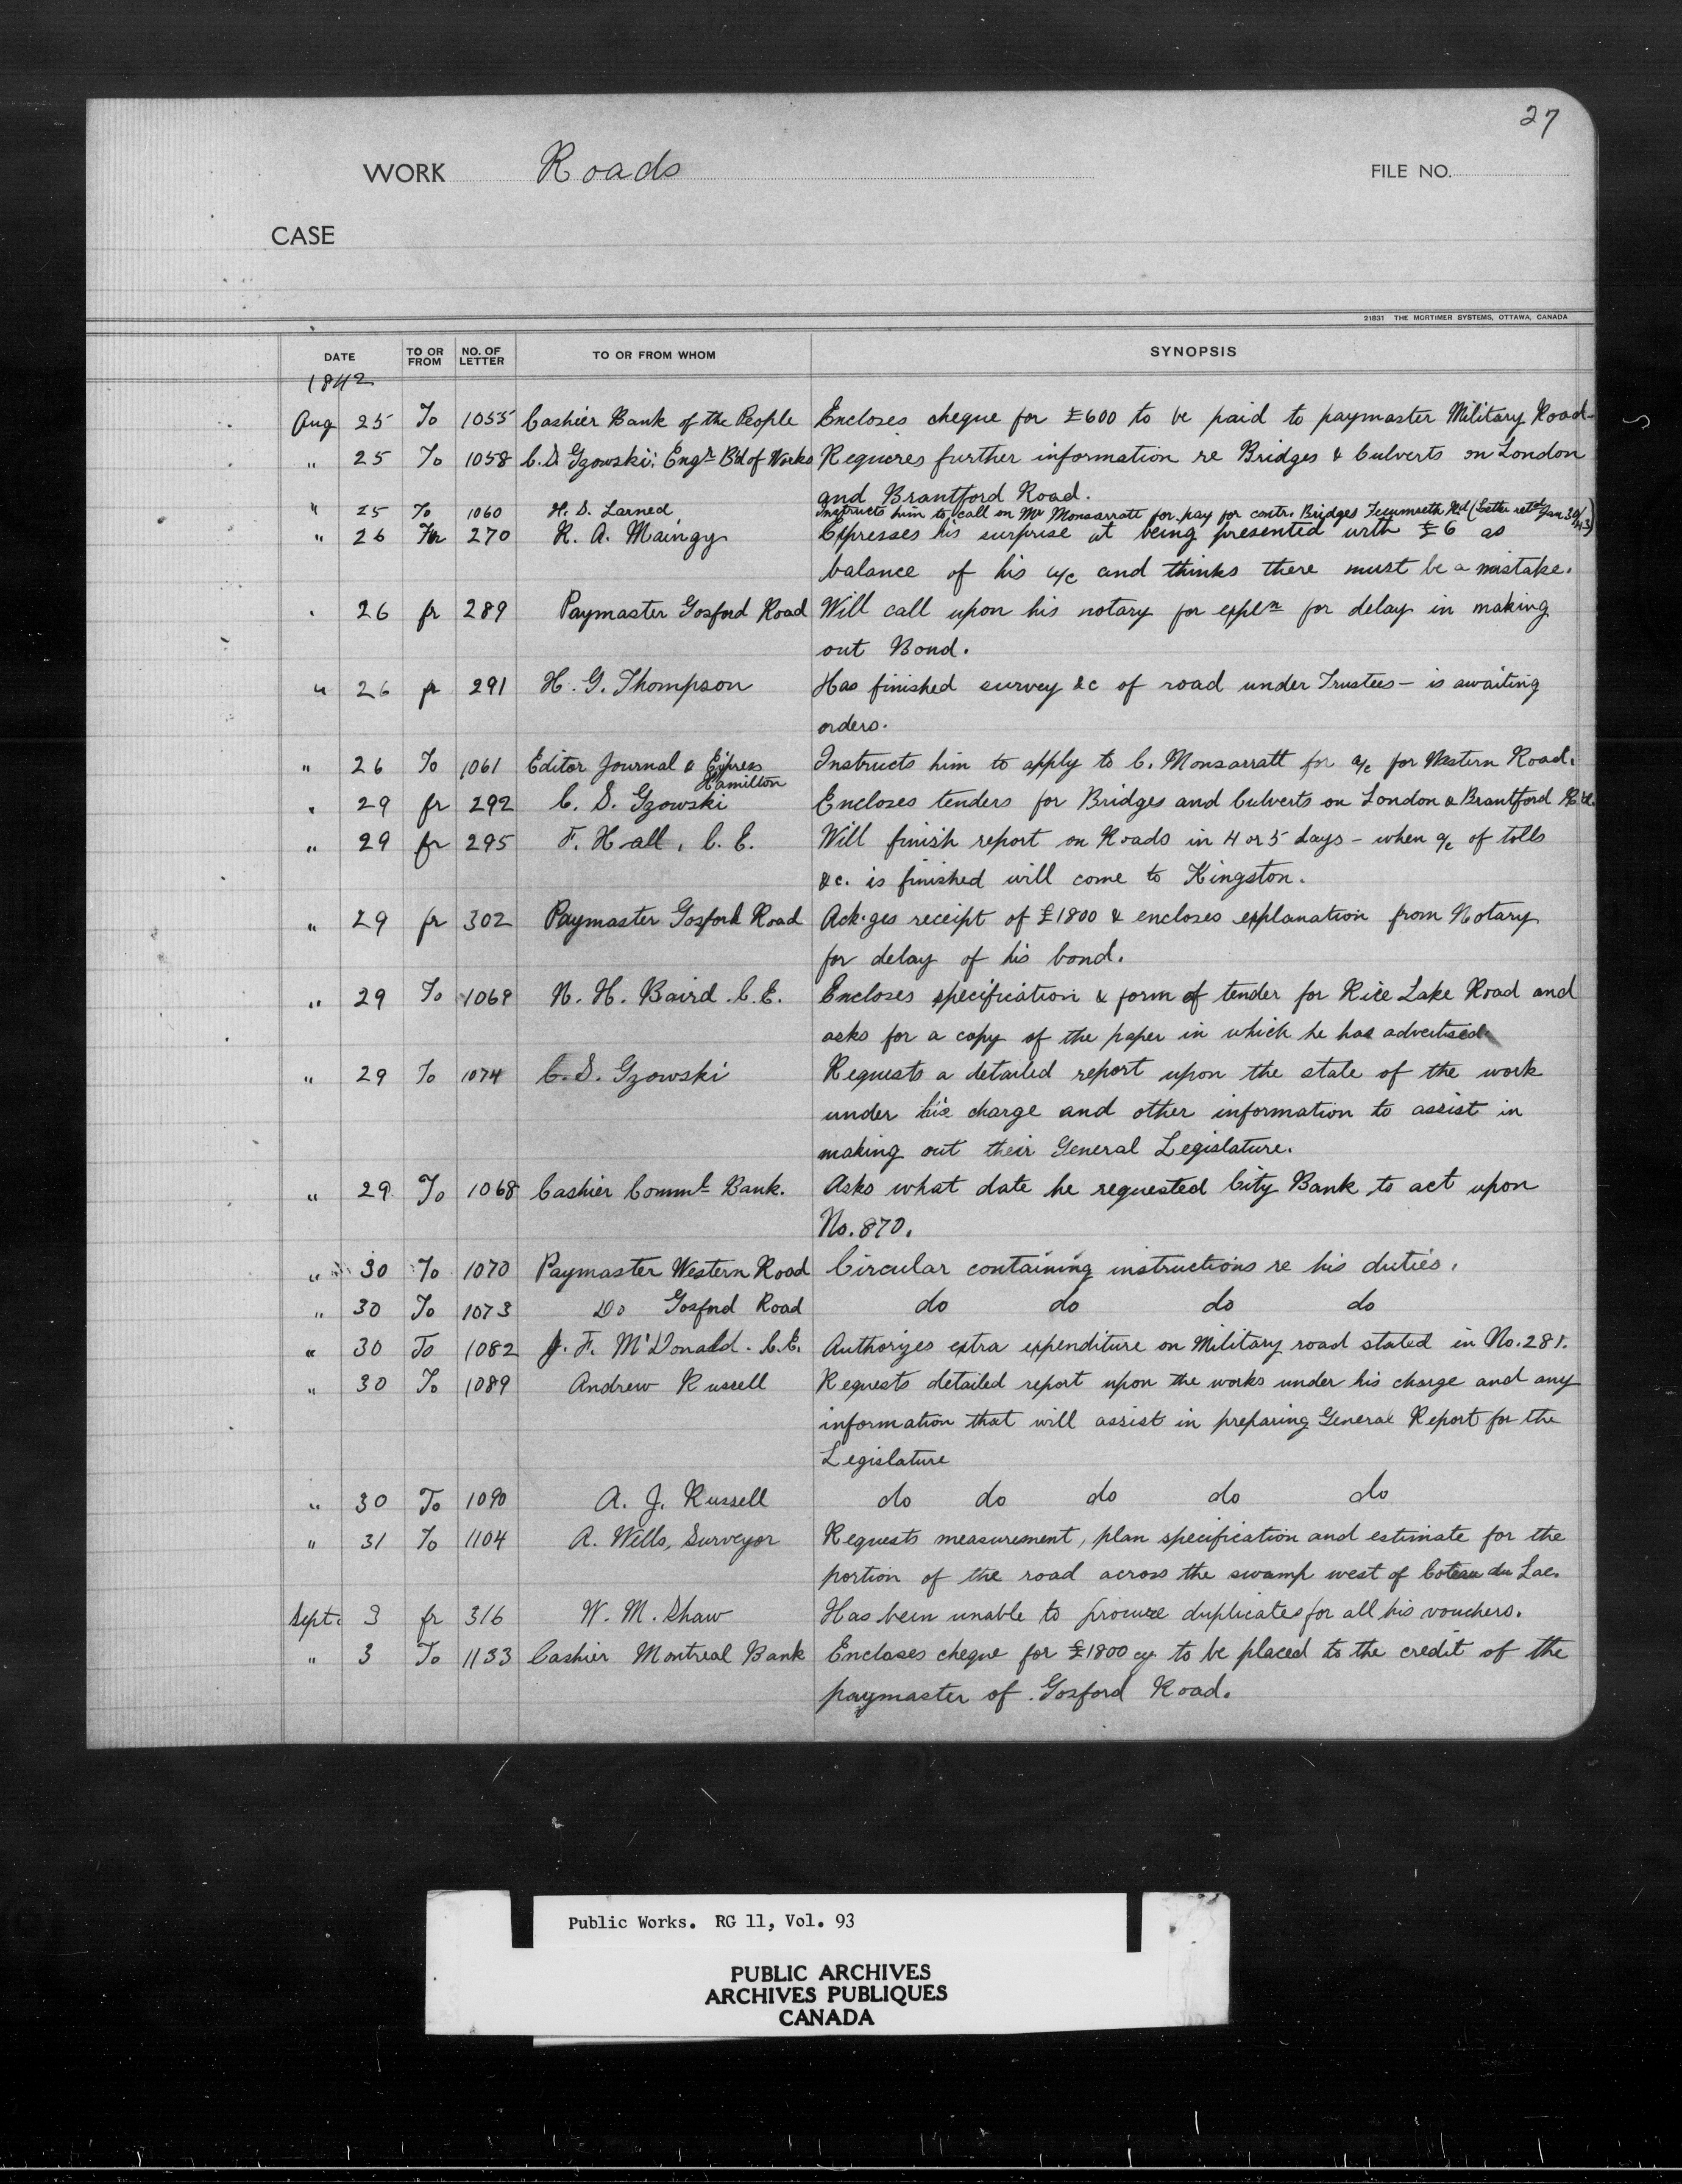 27
WORK Roads FILE NO.
CASE
21831 THE MORTIMER SYSTEMS, OTTAWA, CANADA
DATE TO OR FROM NO. OF LETTER TO OR FROM WHOM SYNOPSIS
1842
Aug 25 To 1055 Cashier Bank of the People Encloses cheque for £600 to be paid to paymaster Military Road.
" 25 To 1058 C.S. Gzowski, Engr Bd of Works Requires further information re Bridges & Culverts on London
and Brantford Road.
" 25 To 1060 H. D. Larned Instructs him to call on Mr Monsarrate for pay for contr. Bridges Tecumseth Rd (Letter retd Jan 30/43)
" 26 Fr 270 R. A. Maingy Expresses his surprise at being presented with £6 as
balance of his a/c and thinks there must be a mistake.
" 26 fr 289 Paymaster Gosford Road Will call upon his notary for expln for delay in making
out Bond.
" 26 fr 291 H. G. Thompson Has finished survey &c of road under Trustees - is awaiting
orders.
" 26 To 1061 Editor Journal & Express Hamilton Instructs him to apply to C. Monsarratt for a/c for Western Road.
" 29 fr 292 C. S. Gzowski Encloses tenders for Bridges and Culverts on London & Brantford Rd.
" 29 fr 295 F. Hall, C. E. Will finish report on Roads in 4 or 5 days - when a/c of tolls
&c. is finished will come to Kingston.
" 29 fr 302 Paymaster Gosford Road Ack.ges receipt of £1800 & encloses explanation from Notary
for delay of his bond.
" 29 To 1069 N. H. Baird. C.E. Encloses specification & form of tender for Rice Lake Road and
asks for a copy of the paper in which he has advertised.
" 29 To 1074 C. S. Gzowski Requests a detailed report upon the state of the work
under his charge and other information to assist in
making out their General Legislature.
" 29 To 1068 Cashier Comml Bank. Asks what date he requested City Bank to act upon
No. 870.
" 30 To 1070 Paymaster Western Road Circular containing instructions re his duties.
" 30 To 1073 Do Gosford Road do do do do
" 30 To 1082 J. F. McDonald. C.E. Authorizes extra expenditure on Military road stated in No. 281.
" 30 To 1089 Andrew Russell Requests detailed report upon the works under his charge and any
information that will assist in preparing General Report for the
Legislature
" 30 To 1090 A. J. Russell do do do do do
" 31 To 1104 A. Wells, Surveyor Requests measurement, plan specification and estimate for the
portion of the road across the swamp west of Coteau du Lac.
Sept. 3 fr 316 W. M. Shaw Has been unable to procure duplicates for all his vouchers.
" 3 To 1133 Cashier Montreal Bank Encloses cheque for £1800 cy to be placed to the credit of the
paymaster of Gosford Road.
Public Works. RG 11, Vol. 93
PUBLIC ARCHIVES
ARCHIVES PUBLIQUES
CANADA